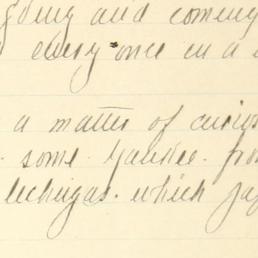 going and coming
every once in a
a matter of curios
some Yankee from
lechugas. which